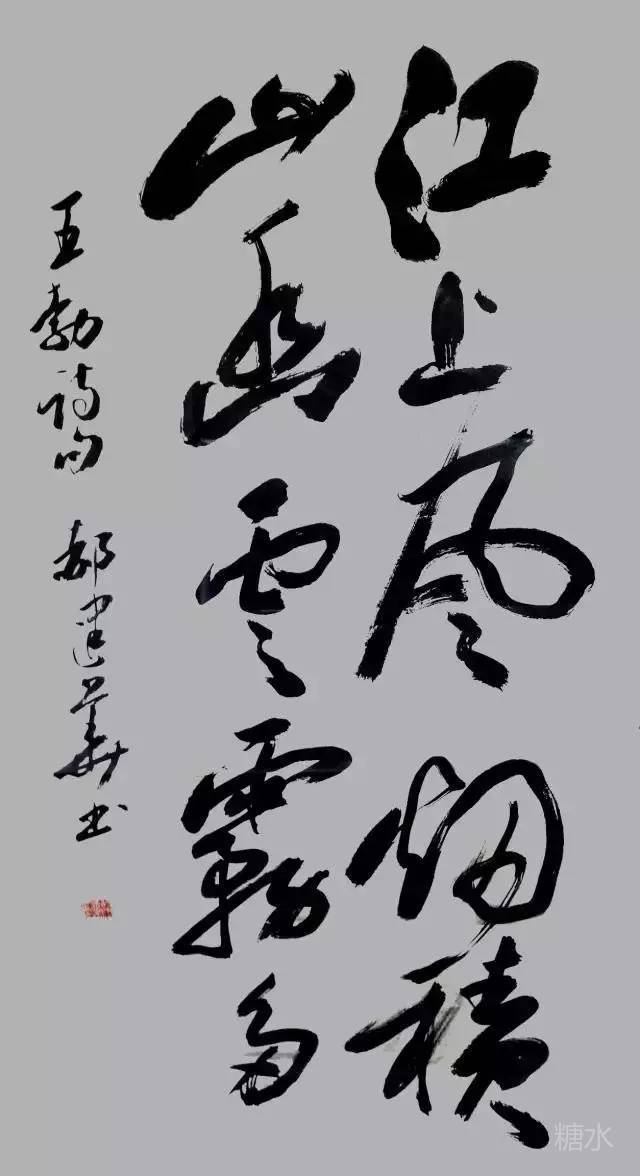 江上风烟积
山幽云雾多
王勃诗句 郝建华书
糖水